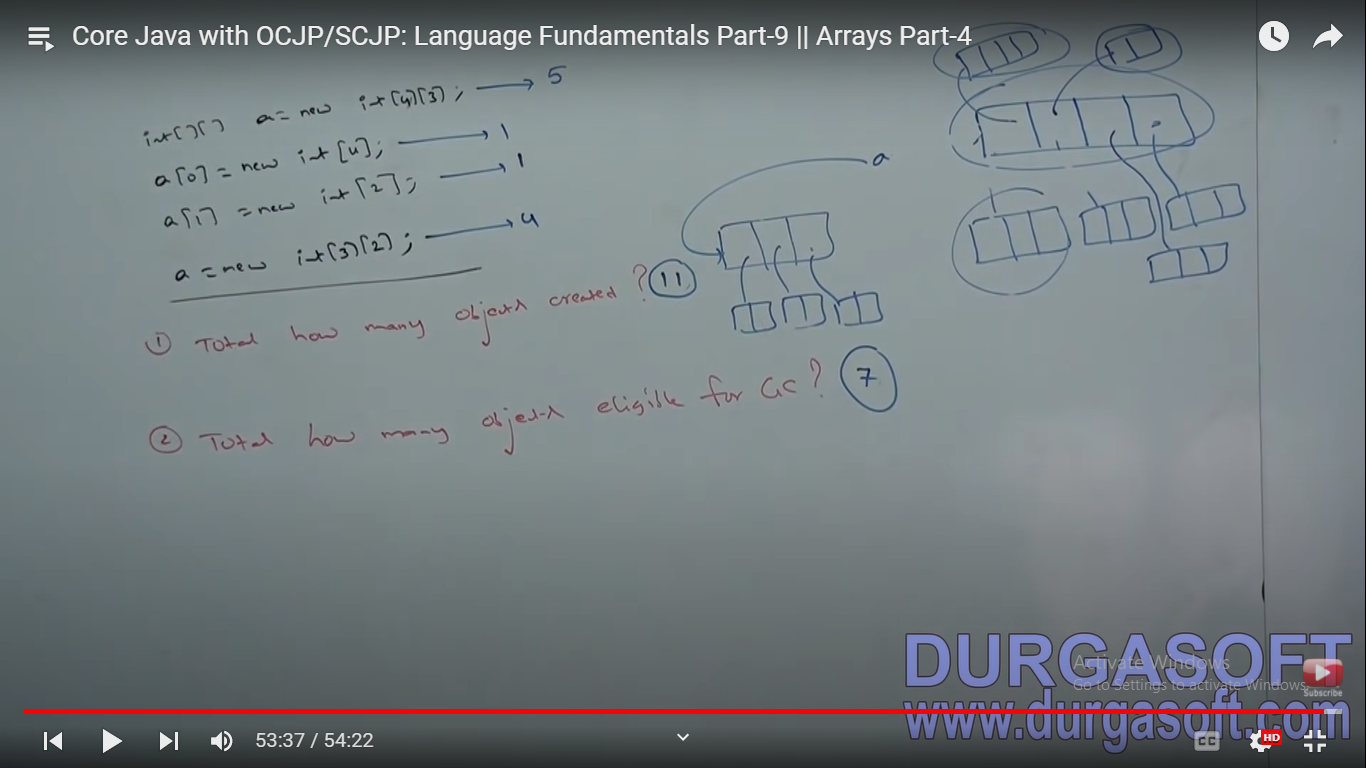 Core Java with OCJP/SCJP: Language Fundamentals Part-9 || Arrays Part-4
int[][] a = new int[4][3]; → 5
a[0] = new int[4]; → 1
a[1] = new int[2]; → 1
a = new int[3][2]; → 4
a
① Total how many objects created? 11
② Total how many objects eligible for GC? 7
DURGASOFT
Activate Windows
Go to Settings to activate Windows.
Subscribe
www.durgasoft.com
53:37 / 54:22
CC
HD